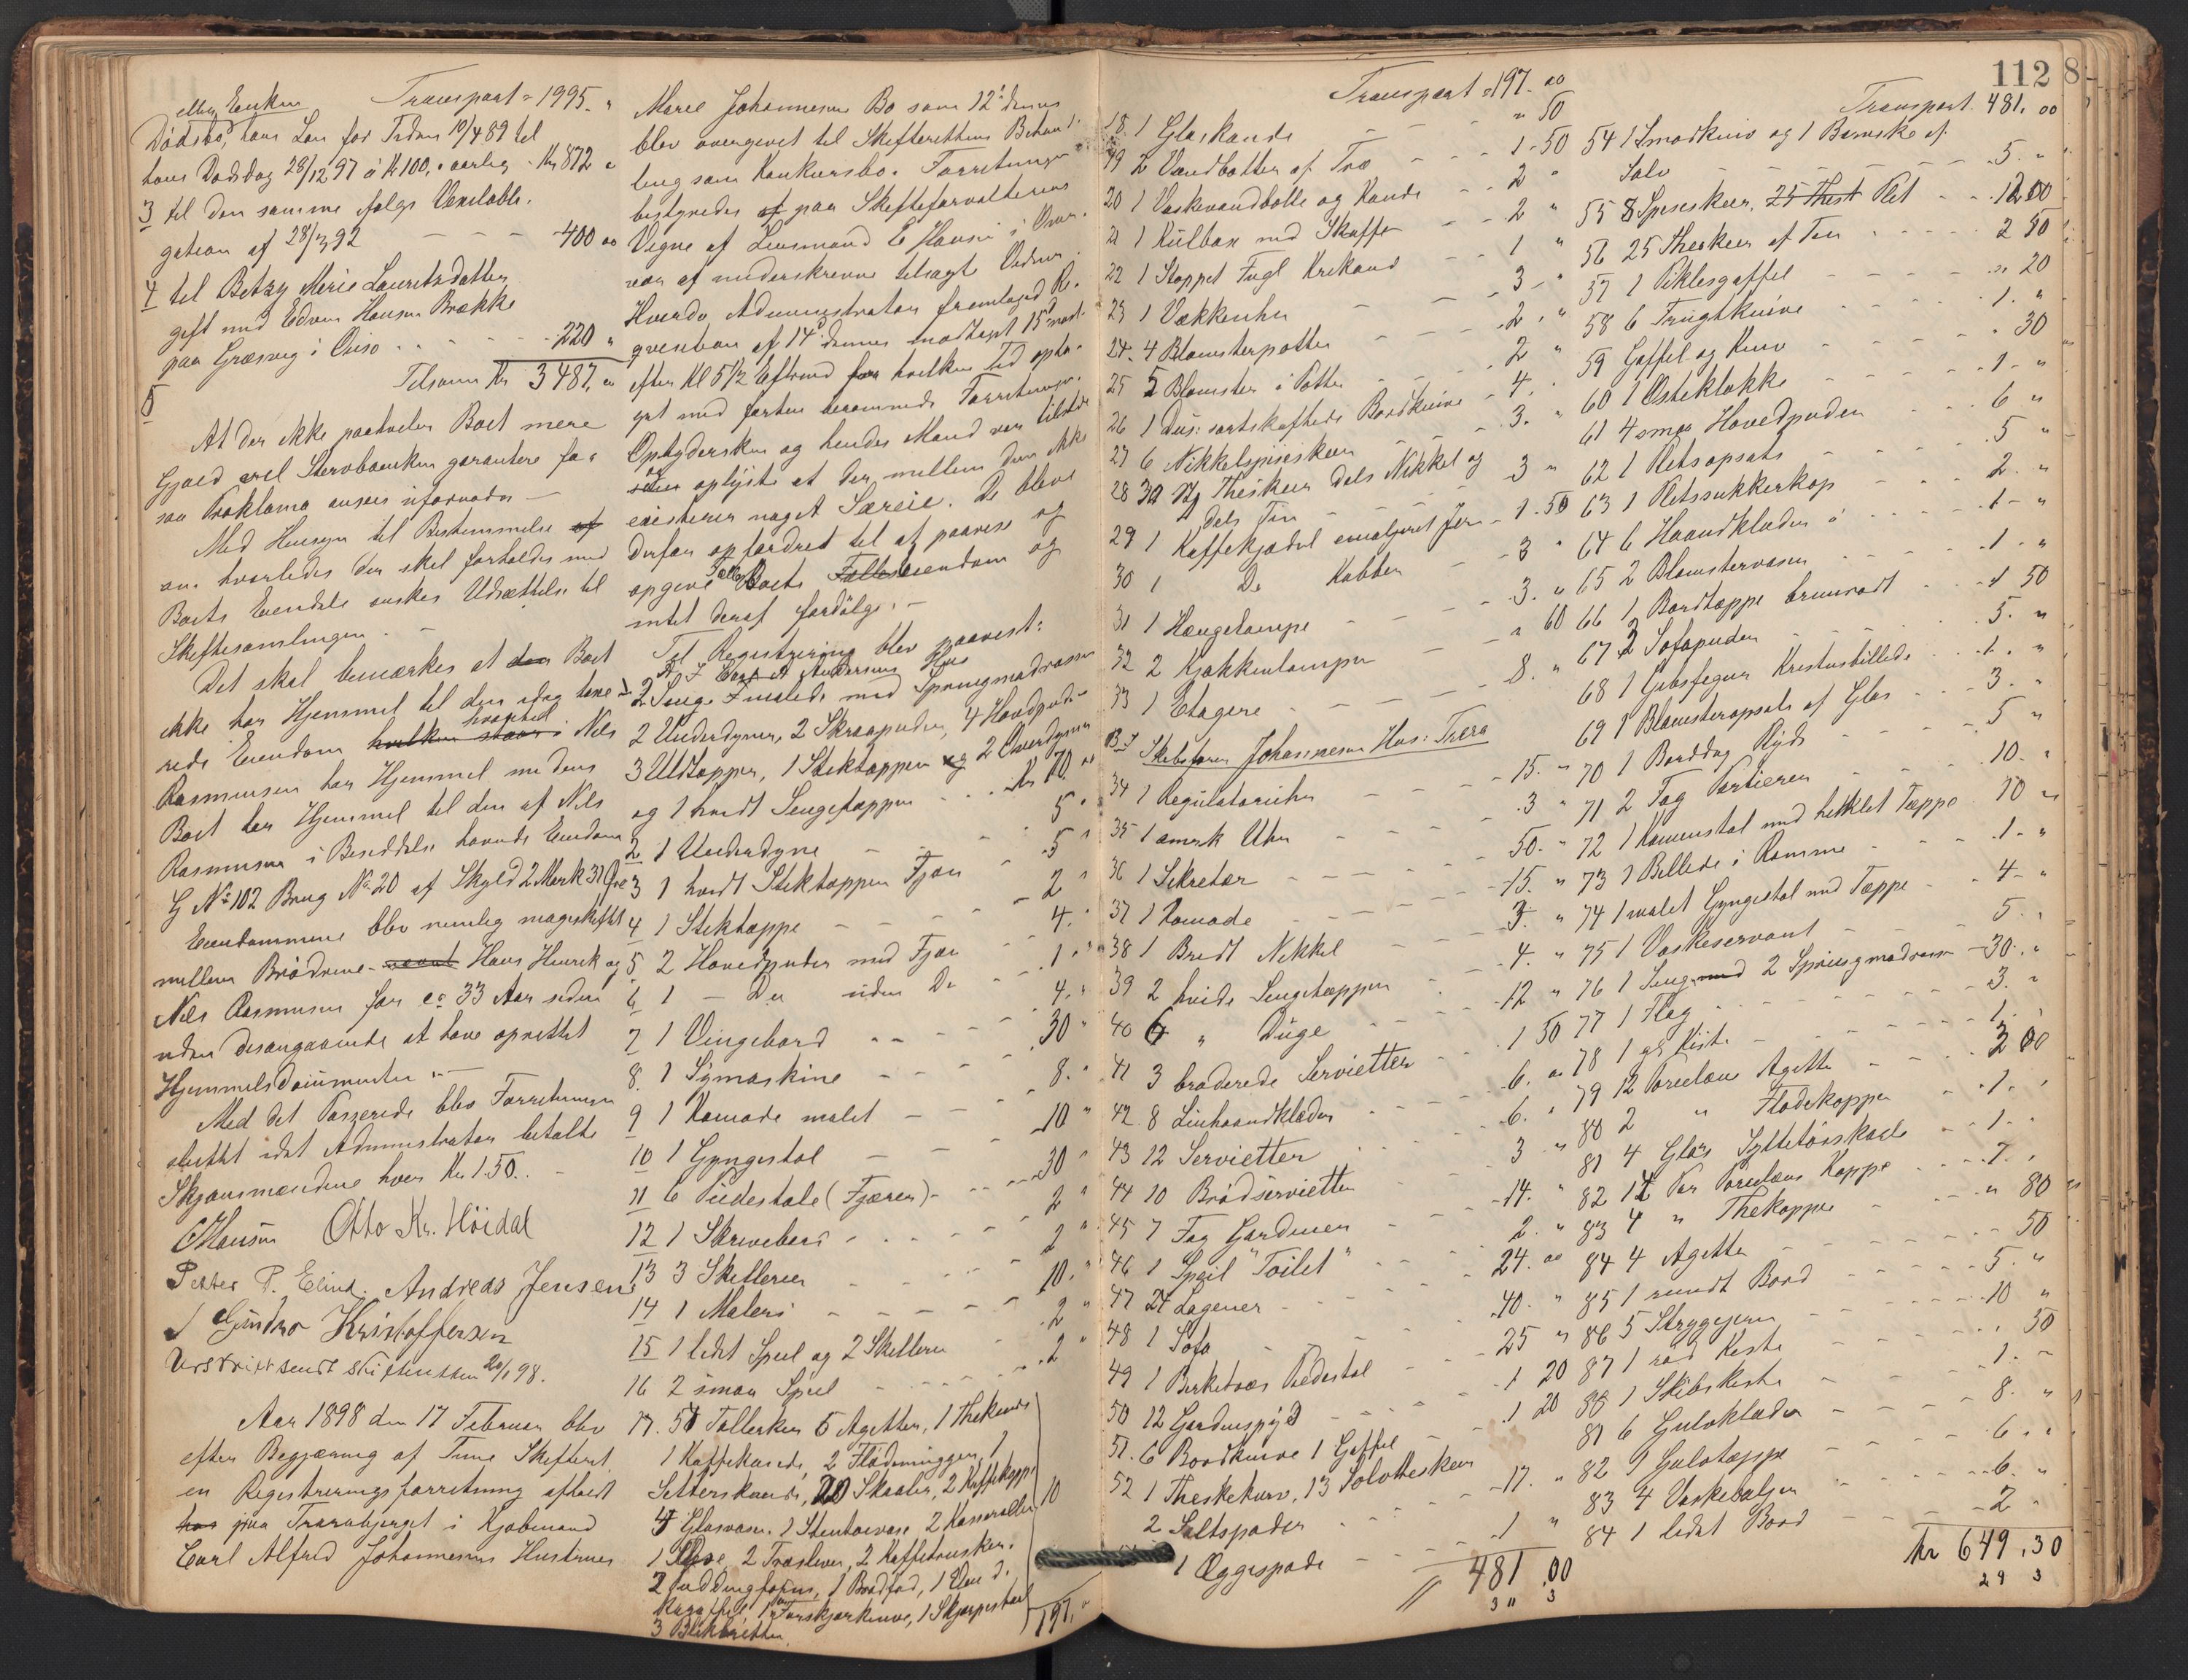 Enken Transport = 1995. "
Dødsbo, hans Løn for Tiden 10/4 89 til
hans Dødsdag 28/12 97 á K 100, aarlig - Kr 872 "
3 til den samme ifølge Vexelobli-
gation af 28/3 92 - - - 400 00
4 til Betzy Marie Lauritzdatter
gift med Edvin Hansen Brække
paa Græsvig i Onsø - - - 220 "
Tilsammen Kr 3487. 00
5
At der ikke paahviler Boet mere
Gjæld vil Stervboenken garantere for
saa Proklama ansees ufornøden -
Med Hensyn til Bestemmelse af
om hvorledes der skal forholdes med
Boets Eiendele ønskes Udsættelse til
Skiftesamlingen. -
Det skal bemærkes at den Boet
ikke har Hjemmel til den idag taxe-
rede Eiendom hvilken staar i hvortil Nils
Rasmussen har Hjemmel medens
Boet har Hjemmel til den af Nils
Rasmussen i Besiddelse havende Eiendom
G No 102 Brug No 20 af Skyld 2 Mark 31 Øre
Eiendommene blev nemlig mageskiftet
mellem Brødrene Hans Henrik og
Nils Rasmussen for ca 33 Aar siden
uden desangaaende at have oprettet
Hjemmelsdocumenter. -
Med det Passerede blev Forretningen
sluttet idet Administrator betalte
Skjønsmændene hver Kr 1.50. -
E Hansen Otto Kr. Höidal
Petter P. Elind. Andreas Jensen
Gunder Kristoffersen
Udskrift sendt Skifteretten 20/1 98.
Aar 1898 den 17 Februar blev
efter Begjæring af Tune Skifteret
en Registreringsforretning afholdt
hos paa Traraberget i Kjøbmand
Carl Alfred Johannesens Hustrues
Marie Johannesens Bo som 12te dennes
blev overgivet til Skifterettens Behand-
ling som Konkursbo. Forretningen
bestyredes af paa Skifteforvalterens
Vegne af Lensmand E Hansen i Over-
vær af underskrevne tilsagte Vidner.
Hvorda Administrator fremlagde Re-
qvisition af 14d dennes modtagt 15 næst-
efter Kl 5 1/2 Eftmd for hvilken Tid opta-
get med forten berammede Forretninger.
Opbydersken og hendes Mand var tilstede
og oplyste at der mellem dem ikke
existerer noget Særeie. De bleve
derfor opfordret til at paavise og
opgive Fælles Boets Fælleseiendom og
intet deraf fordølge. -
Til Registrering blev paavist:
A. I Carl A Andersens Hus
1 2 Senge Fmalede med Springmadrasser
2 Underdyner, 2 Skraapuder, 4 Hovedpuder
3 Uldtæpper, 1 Stiktæppen og 2 Overdyner
og 1 hvidt Sengetæppe - - Kr 70. 00
2 1 Underdyne - - 5 "
3 1 hvidt Stiktæppen Fjær - 5 "
4 1 Stiktæppe - - - 2 "
5 2 Hovedpuder med Fjær - 4. "
6 1 - Do uden Do - 1. "
7 1 Vingebord - - 4. "
8. 1 Symaskine - - - 30 "
9 1 Komode malet - - 8. "
10 1 Gyngestol - - 10 "
11 6 Pidestale (Fjæren) - - 30 "
12 1 Skrivebord - - - 2 "
13 3 Skillerier - - 2 "
14 1 Maleri - - - 10. "
15 1 lidet Speil og 2 Skillerier - 2 "
16 2 smaa Speil - - - 2 "
17. 51 Tallerken 5 Agetter, 1 Thekande
1 Kaffekande, 2 Flødemugger, 1
Setterskande, 20 Skaaler, 2 Kaffekopper 10
4 Glasvaser, 1 Stentøivase 2 Kasseroller
1 Slive, 2 Træsliver, 2 Kaffetrusker.
2 Puddingforms, 1 Brødfad, 1
1 Forskjærknive, 1 Skjærpestaal
3 Blikbretter. 197. "
112 8
Transport = 197. 00
18. 1 Glaskande - - " 50
19 2 Vandbøtter af Træ - - 1 - 50
20 1 Vaskevandbolle og Kande - 2 "
21 1 Kulbox med Skuffe - 2 "
22 1 Stoppet Fugl Krikand - - 1 "
23 1 Vækkeuhr - - - 3 "
24. 4 Blomsterpotter - - 2 "
25 5 Blomster i Potter - - 2 "
26 1 Dus: sortskaftede Bordknive - 4. "
27 6 Nikkelspiseskeer - - 3. "
28 32 Stg Theskeer dels Nikkel og
dels Tin - - - 3 "
29 1 Kaffekjædel emaljeret Jern - 1. 50
30 1 Do Kobber - 3 "
31 1 Hængelampe - - - 3. "
32 2 Kjøkkenlamper - - " 60
33 1 Etagere - - - 8. "
B. I Skibsfører Johannesens Hus: Trara
34 1 Regulatoruhr - - 15. "
35 1 amrk Uhr - - 3 "
36 1 Sekretær - - - 50. "
37 1 Komode - - - 15. "
38 1 Bredt Nikkel - - 3. "
39 2 hvide Sengetæpper - - 4. "
40 6 " Duge - - 12 "
41 3 broderede Servietter - 1 50
42. 8 Linhaandklæder - - 6. "
43 12 Servietter - - 6. "
44 10 Brødservietter - - 3 "
45 7 Fag Gardiner - - 14. "
46 1 Speil "Toilet" - - 2. "
47 24 Lagener - - 24. 00
48 1 Sofa - - 40. "
49 1 Birketræs Piedestal - - 25 "
50 12 Gardinspyd - - 1 20
51. 6 Bordknive 1 Gaffel - - 1 20
52 1 Theskekurv, 13 Sølvtheskeer
2 Saltspader - - - 17. "
1 Æggespade - - 1 "
481 .00
Transport. 481. 00
54 1 Smørkniv og 1 Barneske af
Sølv - - - 5. "
55 8 Spiseskeer, 25 Thesk Plet - - 12 00
56 25 Theskeer af Tin - - 2 50
57 1 Piklesgaffel - - - " 20
58 6 Frugtknive - - - 1. "
59 Gaffel og Kniv - - - " 30
60 1 Osteklokke - - - 1 - "
61 4 smaa Hovedpuder - - 6 "
62 1 Pletsopsats - - - 5 "
63 1 Pletssukkerkop - - 2. "
64 6 Haandklæder á - - 1 - "
65 2 Blomstervaser - - 1 - "
66 1 Bordtæppe brunrødt - - 1 50
67 2 Sofapuder - - - 5. "
68 1 Gibsfigur Kristusbillede - - 1. "
69 1 Blomsteropsats af Glas - - 3. "
70 1 Borddug Plyds - - - 5 "
71 2 Fag Portierer - - 10. "
72 1 Kurvestol med heklet Tæppe 10 "
73 1 Billede i Ramme - - 1 - "
74 1 malet Gyngestol med Tæppe - - 4 - "
75 1 Vaskeservant - - - 5. "
76 1 Seng med 2 Springmadrasser - 30. "
77 1 Flag - - - 3. "
78 1 gl Kiste - - - 1. "
79 12 Porcelæns Agetter - - 2 00
80 2 " Flødekopper - 1. "
81 4 Glas Syltetøiskaale - 1. "
82 12 Par Porcelæns Koppe - - 7. "
83 4 " Thekoppe - - " 80
84 4 Agetter - - - 50
85 1 rundt Bord - - - 5. "
86 5 Strygejern - - - 10 "
87 1 rød Kiste - - - " 50
88 1 Skibskiste - - - 1. "
81 6 Gulvklæder - - - 8. "
82 1 Gulvtæppe - - 6. "
83 4 Vaskebaljer - - - 6. "
84 1 lidet Bord - - - 2 "
Kr 649,30